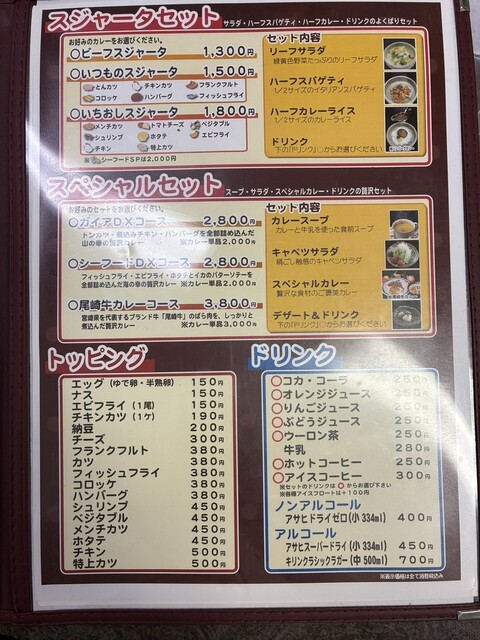 スジャータセット サラダ・ハーフスパゲティ・ハーフカレー・ドリンクのよくばりセット
お好みのカレーをお選びください。
○ビーフスジャータ 1,300円
○いつものスジャータ 1,500円
とんカツ チキンカツ フランクフルト
コロッケ ハンバーグ フィッシュフライ
○いちおしスジャータ 1,800円
メンチカツ トマトチーズ ベジタブル
シュリンプ ホタテ エビフライ
チキン 特上カツ
※シーフードSPは2,000円
セット内容
リーフサラダ
緑黄色野菜たっぷりのリーフサラダ
ハーフスパゲティ
1/2サイズのイタリアンスパゲティ
ハーフカレーライス
1/2サイズのカレーライス
ドリンク
下の「ドリンク」○からお選びください
スペシャルセット スープ・サラダ・スペシャルカレー・ドリンクの贅沢セット
お好みのセットをお選びください。
○ガイアDXコース 2,800円
トンカツ・煮込みチキン・ハンバーグを全部詰め込んだ
山の幸の贅沢カレー ※カレー単品2,000円
○シーフードDXコース 2,800円
フィッシュフライ・エビフライ・ホタテとイカのバターソテーを
全部詰め込んだ海の幸の贅沢カレー ※カレー単品2,000円
○尾崎牛カレーコース 3,800円
宮崎県を代表するブランド牛「尾崎牛」のばら肉を、しっかりと
煮込んだ贅沢カレー ※カレー単品3,000円
セット内容
カレースープ
カレーと牛乳を使った食前スープ
キャベツサラダ
絹ごし触感のキャベツサラダ
スペシャルカレー
贅沢な食材のご褒美カレー
デザート&ドリンク
下の「ドリンク」○からお選びください
トッピング
エッグ(ゆで卵・半熟卵) 150円
ナス 150円
エビフライ(1尾) 150円
チキンカツ(1ケ) 190円
納豆 200円
チーズ 300円
フランクフルト 380円
カツ 380円
フィッシュフライ 380円
コロッケ 380円
ハンバーグ 380円
シュリンプ 450円
ベジタブル 450円
メンチカツ 450円
ホタテ 450円
チキン 500円
特上カツ 500円
ドリンク
○コカ・コーラ 250円
○オレンジジュース 250円
○りんごジュース 250円
○ぶどうジュース 250円
○ウーロン茶 250円
牛乳 280円
○ホットコーヒー 250円
○アイスコーヒー 300円
※セットのドリンクは○からお選び下さい
※各種アイスフロートは+100円
ノンアルコール
アサヒドライゼロ(小 334ml) 400円
アルコール
アサヒスーパードライ(小 334ml) 450円
キリンクラシックラガー(中 500ml) 700円
※表示価格は全て消費税込み